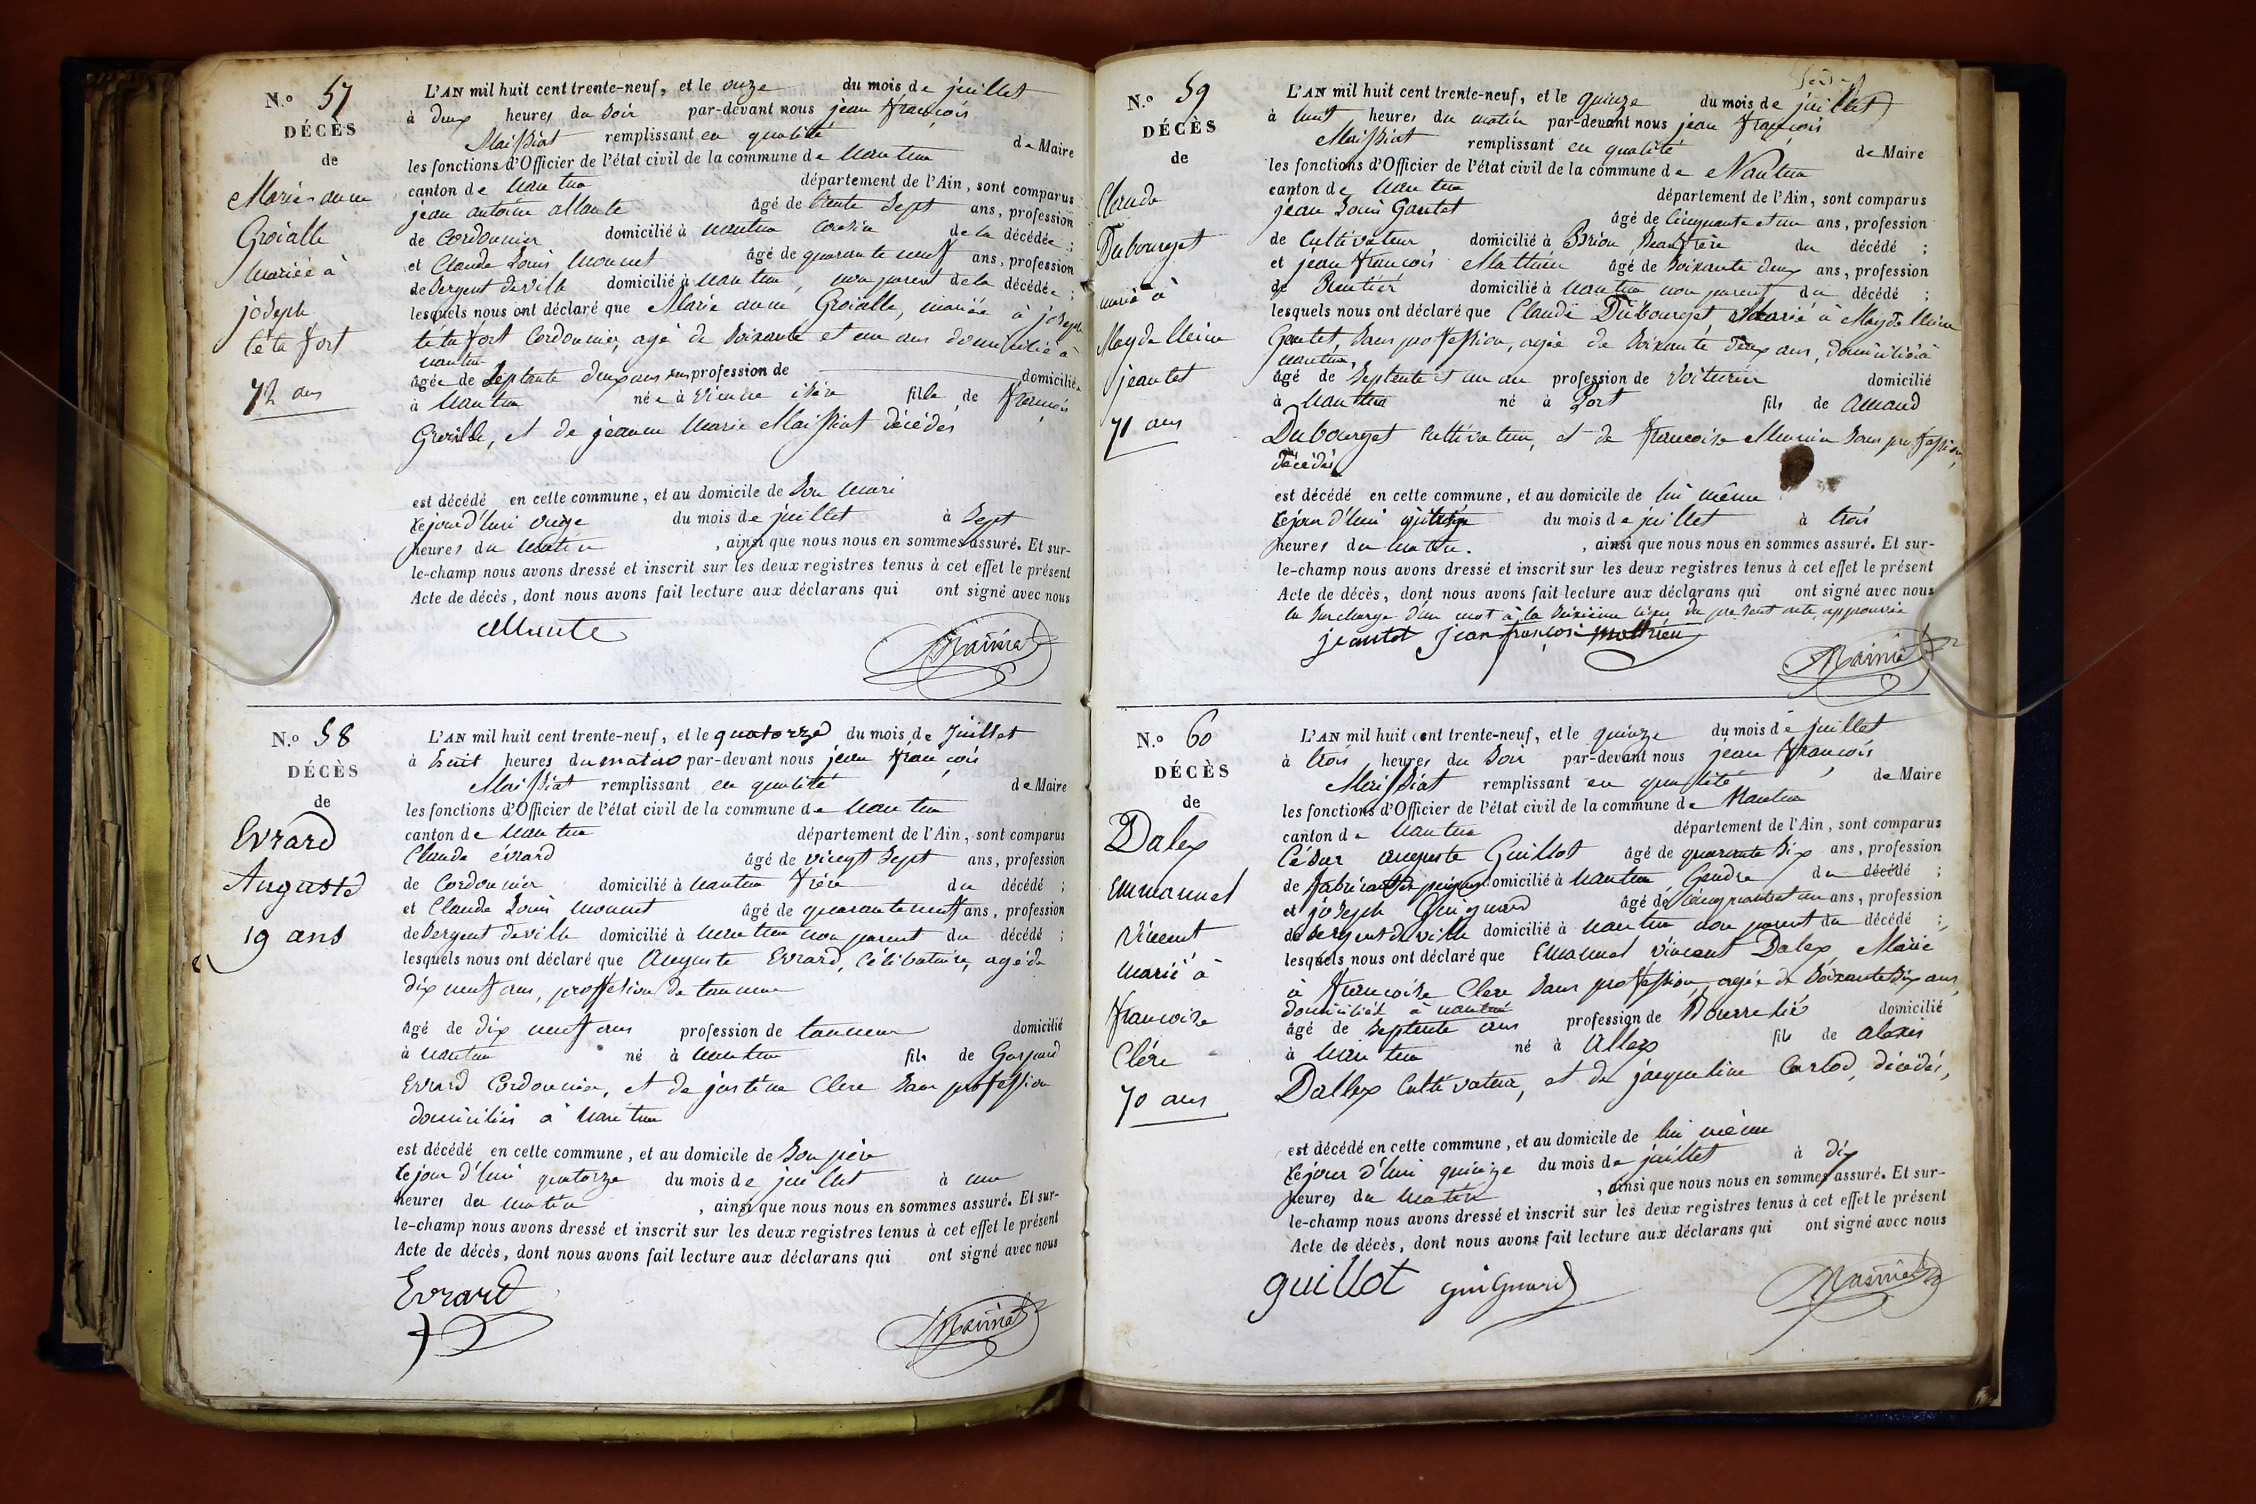 N.° 57
DÉCÈS
de
Marie anne
Groialle
mariée à
joseph
téta fort
72 ans
L'AN mil huit cent trente-neuf, et le onze du mois de juillet
à deux heures du soir par-devant nous jean françois
Maissiat remplissant en qualité de Maire
les fonctions d'Officier de l'état civil de la commune de Nantua
canton de nantua département de l'Ain, sont comparus
jean antoine allante âgé de trente sept ans, profession
de Cordonnier domicilié à nantua de la décédée ;
et Claude Louis monnet âgé de quarante neuf ans, profession
de Sergent de ville domicilié à nantua, non parent de la décédée ;
lesquels nous ont déclaré que Marie anne Groialle, mariée à joseph
téta fort Cordonnier, agé de soixante et un ans domicilié à
nantua
âgée de septante deux ans sans profession de domiciliée
à nantua née à Vienne isère fille de françois
Groialle, et de jeanne Marie Maissiat décédés
est décédé en cette commune, et au domicile de son mari
cejourd'hui onze du mois de juillet à sept
heures du matin , ainsi que nous nous en sommes assuré. Et sur-
le-champ nous avons dressé et inscrit sur les deux registres tenus à cet effet le présent
Acte de décès, dont nous avons fait lecture aux déclarans qui ont signé avec nous
allante
N.° 58
DÉCÈS
de
Evrard
Auguste
19 ans
L'AN mil huit cent trente-neuf, et le quatorze du mois de Juillet
à huit heures du matin par-devant nous jean françois
Maissiat remplissant en qualité de Maire
les fonctions d'Officier de l'état civil de la commune de nantua
canton de nantua département de l'Ain, sont comparus
Claude évrard âgé de vingt sept ans, profession
de Cordonnier domicilié à nantua frère du décédé ;
et Claude Louis monnet âgé de quarante neuf ans, profession
de Sergent de ville domicilié à nantua non parent du décédé ;
lesquels nous ont déclaré que Auguste Evrard, Célibataire, agé de
dix neuf ans, proffesion de tanneur
âgé de dix neuf ans profession de tanneur domicilié
à nantua né à nantua fils de Gaspard
Evrard Cordonnier, et de justine Clere sans profession
domiciliés à nantua
est décédé en cette commune, et au domicile de son père
cejourd'hui quatorze du mois de juillet à une
heures du matin , ainsi que nous nous en sommes assuré. Et sur-
le-champ nous avons dressé et inscrit sur les deux registres tenus à cet effet le présent
Acte de décès, dont nous avons fait lecture aux déclarans qui ont signé avec nous
Evrard
N.° 59
DÉCÈS
de
Claude
Dubourget
marié à
Magdelleine
jeantet
71 ans
L'AN mil huit cent trente-neuf, et le quinze du mois de juillet
à huit heures du matin par-devant nous jean françois
Maissiat remplissant en qualité de Maire
les fonctions d'Officier de l'état civil de la commune de Nantua
canton de nantua département de l'Ain, sont comparus
jean Louis Gantet âgé de Cinquante et un ans, profession
de Cultivateur domicilié à Brion Beaufrère du décédé ;
et jean francois Mathieu âgé de soixante deux ans, profession
de Rentier domicilié à nantua non parent du décédé ;
lesquels nous ont déclaré que Claude Dubourget Marié à Magdelleine
Gantet, sans profession, agée de soixante deux ans, domiciliée à
nantua,
âgé de septente et un an profession de Voiturier domicilié
à nantua né à Port fils de Amand
Dubourget cultivateur, et de francoise Meunier sans profession,
décédés
est décédé en cette commune, et au domicile de lui même
cejourd'hui quinze du mois de juillet à trois
heures du matin. , ainsi que nous nous en sommes assuré. Et sur-
le-champ nous avons dressé et inscrit sur les deux registres tenus à cet effet le présent
Acte de décès, dont nous avons fait lecture aux déclarans qui ont signé avec nous
la surcharge d'un mot à la dixieme ligne du présent acte approuvée
jeantet jean françois mathieu
N.° 60
DÉCÈS
de
Dalex
Emmanuel
Vincent
marié à
francoise
Clére
70 ans
L'AN mil huit cent trente-neuf, et le quinze du mois de juillet
à trois heures du soir par-devant nous jean françois
Maissiat remplissant en qualité de Maire
les fonctions d'Officier de l'état civil de la commune de Nantua
canton de nantua département de l'Ain, sont comparus
César auguste Guillot âgé de quarante six ans, profession
de fabricant de peignes domicilié à nantua Gendre du décédé ;
et joseph Guignard âgé de Cinquante et un ans, profession
de Sergent de ville domicilié à nantua non parent du décédé ;
lesquels nous ont déclaré que Emanuel Vincent Dalex, Marié
à francoise Clere sans profession, agée de soixante dix ans,
domiciliée à nantua
âgé de septente ans profession de Bourrelié domicilié
à nantua né à Allex fils de alexis
Dallex Cultivateur, et de jacqueline Carlod, décédés,
est décédé en cette commune, et au domicile de lui même
cejourd'hui quinze du mois de juillet à dix
heures du matin , ainsi que nous nous en sommes assuré. Et sur-
le-champ nous avons dressé et inscrit sur les deux registres tenus à cet effet le présent
Acte de décès, dont nous avons fait lecture aux déclarans qui ont signé avec nous
guillot guignard